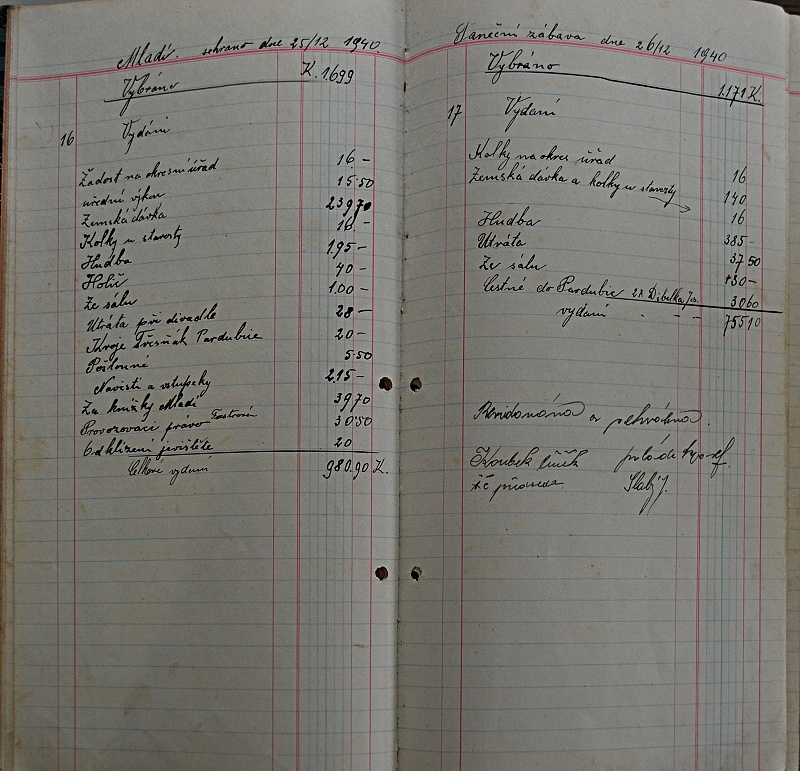 Mladí. sehráno dne 25/12 1940
Vybráno K. 1699
16 Vydání
Žádost na okresní úřad 16 –
úřední výkon 15·50
Zemská dávka 239 70
Kolky u starosty 16 –
Hudba 195 –
Holič 40 –
Ze sálu 100 –
Útráta při divadle 28 –
Kroje Třesňák Pardubice 20 –
Poštovné 5·50
Návěstí a vstupenky 215 –
Za knížky Mladí 39 70
Provozovací právo 30·50
Odklizení jeviště 20
Celkové vydání 980.90 K.
Taneční zábava dne 26/12 1940
Vybráno 1.171 K.
17 Vydaní
Kolky na okres. úřad 16
Zemská dávka a kolky u starosty 140
16
Hudba 385 –
Útráta 37 50
Ze sálu 130 –
Cestné do Pardubic 2x Dibelka Jos. 30 60
vydání 755 10
Revidována a schválena.
Koubek
předseda Slabý J.